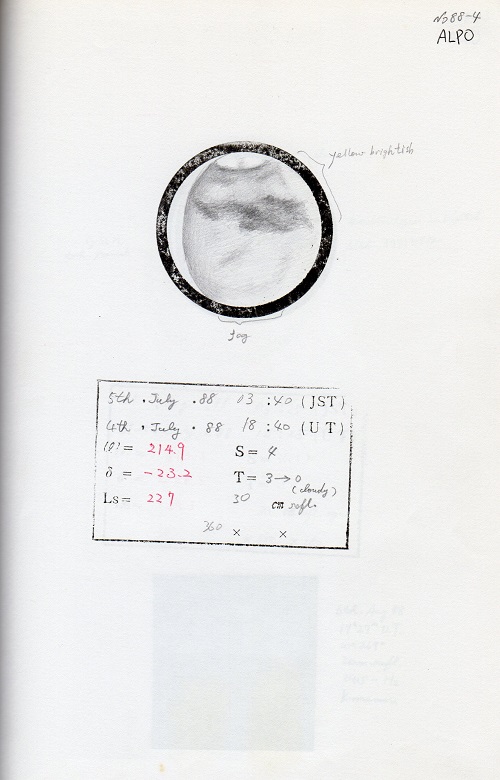 No 88-4
ALPO
yellow brightish
fog
5th . July . 88 03 : 40 (JST)
4th , July . 88 18 : 40 (UT)
(ω) = 214.9 S = 4
δ = -23.2 T = 3→0
(cloudy)
Ls = 227 30 cm refl.
360 × ×